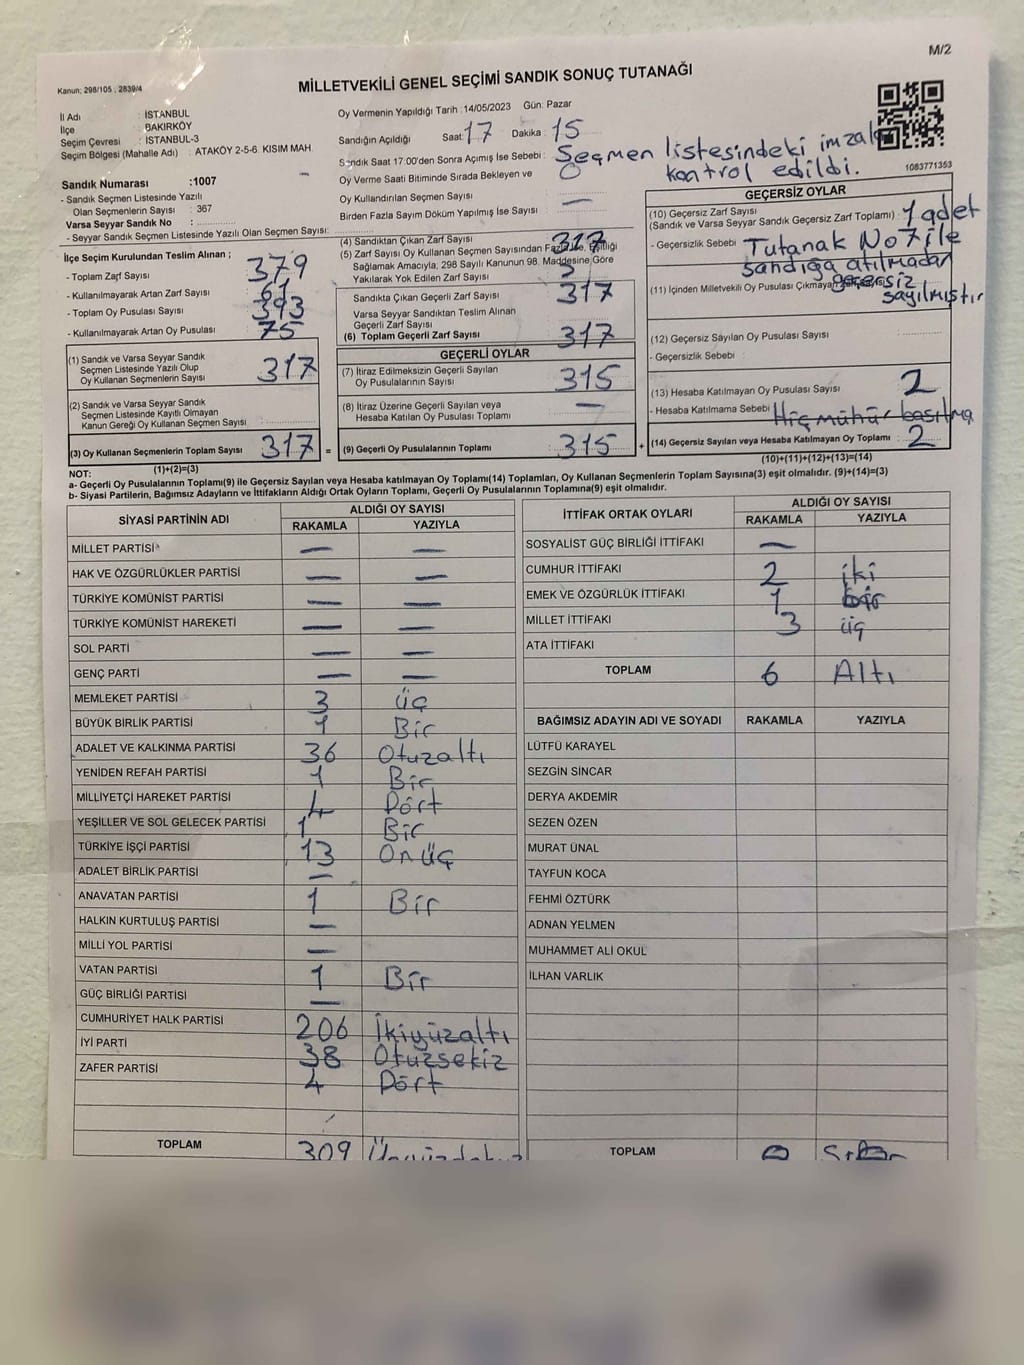 M/2
Kanun; 298/105 , 2839/4
MİLLETVEKİLİ GENEL SEÇİMİ SANDIK SONUÇ TUTANAĞI
İl Adı : İSTANBUL
İlçe : BAKIRKÖY
Seçim Çevresi : İSTANBUL-3
Seçim Bölgesi (Mahalle Adı) : ATAKÖY 2-5-6. KISIM MAH.
Sandık Numarası :1007
- Sandık Seçmen Listesinde Yazılı
Olan Seçmenlerin Sayısı : 367
Varsa Seyyar Sandık No :
- Seyyar Sandık Seçmen Listesinde Yazılı Olan Seçmen Sayısı:
Oy Vermenin Yapıldığı Tarih :14/05/2023 Gün: Pazar
Sandığın Açıldığı Saat: 17 Dakika : 15
Sandık Saat 17:00'den Sonra Açımış İse Sebebi : Seçmen listesindeki imzalar
kontrol edildi.
Oy Verme Saati Bitiminde Sırada Bekleyen ve
Oy Kullandırılan Seçmen Sayısı :
Birden Fazla Sayım Döküm Yapılmış İse Sayısı : —
1083771353
İlçe Seçim Kurulundan Teslim Alınan ;
- Toplam Zarf Sayısı : 379
- Kullanılmayarak Artan Zarf Sayısı : 61
- Toplam Oy Pusulası Sayısı : 393
- Kullanılmayarak Artan Oy Pusulası : 75
(1) Sandık ve Varsa Seyyar Sandık
Seçmen Listesinde Yazılı Olup
Oy Kullanan Seçmenlerin Sayısı : 317
(2) Sandık ve Varsa Seyyar Sandık
Seçmen Listesinde Kayıtlı Olmayan
Kanun Gereği Oy Kullanan Seçmen Sayısı :
(3) Oy Kullanan Seçmenlerin Toplam Sayısı : 317 =
(1)+(2)=(3)
(4) Sandıktan Çıkan Zarf Sayısı : 317
(5) Zarf Sayısı Oy Kullanan Seçmen Sayısından Fazla İse, Eşitliği
Sağlamak Amacıyla, 298 Sayılı Kanunun 98. Maddesine Göre
Yakılarak Yok Edilen Zarf Sayısı :
Sandıkta Çıkan Geçerli Zarf Sayısı : 317
Varsa Seyyar Sandıktan Teslim Alınan
Geçerli Zarf Sayısı :
(6) Toplam Geçerli Zarf Sayısı : 317
GEÇERLİ OYLAR
(7) İtiraz Edilmeksizin Geçerli Sayılan
Oy Pusulalarının Sayısı : 315
(8) İtiraz Üzerine Geçerli Sayılan veya
Hesaba Katılan Oy Pusulası Toplamı : —
(9) Geçerli Oy Pusulalarının Toplamı : 315 +
GEÇERSİZ OYLAR
(10) Geçersiz Zarf Sayısı
(Sandık ve Varsa Seyyar Sandık Geçersiz Zarf Toplamı) : 1 adet
- Geçersizlik Sebebi : Tutanak No7 ile
sandığa atılmadan
geçersiz
sayılmıştır
(11) İçinden Milletvekili Oy Pusulası Çıkmayan
(12) Geçersiz Sayılan Oy Pusulası Sayısı :
- Geçersizlik Sebebi :
(13) Hesaba Katılmayan Oy Pusulası Sayısı : 2
- Hesaba Katılmama Sebebi : Hiç mühür basılma
(14) Geçersiz Sayılan veya Hesaba Katılmayan Oy Toplamı : 2
(10)+(11)+(12)+(13)=(14)
NOT:
a- Geçerli Oy Pusulalarının Toplamı(9) ile Geçersiz Sayılan veya Hesaba Katılmayan Oy Toplamı(14) Toplamları, Oy Kullanan Seçmenlerin Toplam Sayısına(3) eşit olmalıdır. (9)+(14)=(3)
b- Siyasi Partilerin, Bağımsız Adayların ve İttifakların Aldığı Ortak Oyların Toplamı, Geçerli Oy Pusulalarının Toplamına(9) eşit olmalıdır.
SİYASİ PARTİNİN ADI ALDIĞI OY SAYISI
RAKAMLA YAZIYLA
MİLLET PARTİSİ — —
HAK VE ÖZGÜRLÜKLER PARTİSİ — —
TÜRKİYE KOMÜNİST PARTİSİ — —
TÜRKİYE KOMÜNİST HAREKETİ — —
SOL PARTİ — —
GENÇ PARTİ — —
MEMLEKET PARTİSİ 3 üç
BÜYÜK BİRLİK PARTİSİ 1 Bir
ADALET VE KALKINMA PARTİSİ 36 Otuzaltı
YENİDEN REFAH PARTİSİ 1 Bir
MİLLİYETÇİ HAREKET PARTİSİ 4 Dört
YEŞİLLER VE SOL GELECEK PARTİSİ 1 Bir
TÜRKİYE İŞÇİ PARTİSİ 13 Onüç
ADALET BİRLİK PARTİSİ —
ANAVATAN PARTİSİ 1 Bir
HALKIN KURTULUŞ PARTİSİ —
MİLLİ YOL PARTİSİ —
VATAN PARTİSİ 1 Bir
GÜÇ BİRLİĞİ PARTİSİ —
CUMHURİYET HALK PARTİSİ 206 İkiyüzaltı
İYİ PARTİ 38 Otuzsekiz
ZAFER PARTİSİ 4 Dört
TOPLAM 309 Üçyüzdokuz
İTTİFAK ORTAK OYLARI ALDIĞI OY SAYISI
RAKAMLA YAZIYLA
SOSYALİST GÜÇ BİRLİĞİ İTTİFAKI —
CUMHUR İTTİFAKI 2 iki
EMEK VE ÖZGÜRLÜK İTTİFAKI 1 bir
MİLLET İTTİFAKI 3 üç
ATA İTTİFAKI
TOPLAM 6 Altı
BAĞIMSIZ ADAYIN ADI VE SOYADI RAKAMLA YAZIYLA
LÜTFÜ KARAYEL
SEZGİN SİNCAR
DERYA AKDEMİR
SEZEN ÖZEN
MURAT ÜNAL
TAYFUN KOCA
FEHMİ ÖZTÜRK
ADNAN YELMEN
MUHAMMET ALİ OKUL
İLHAN VARLIK
TOPLAM